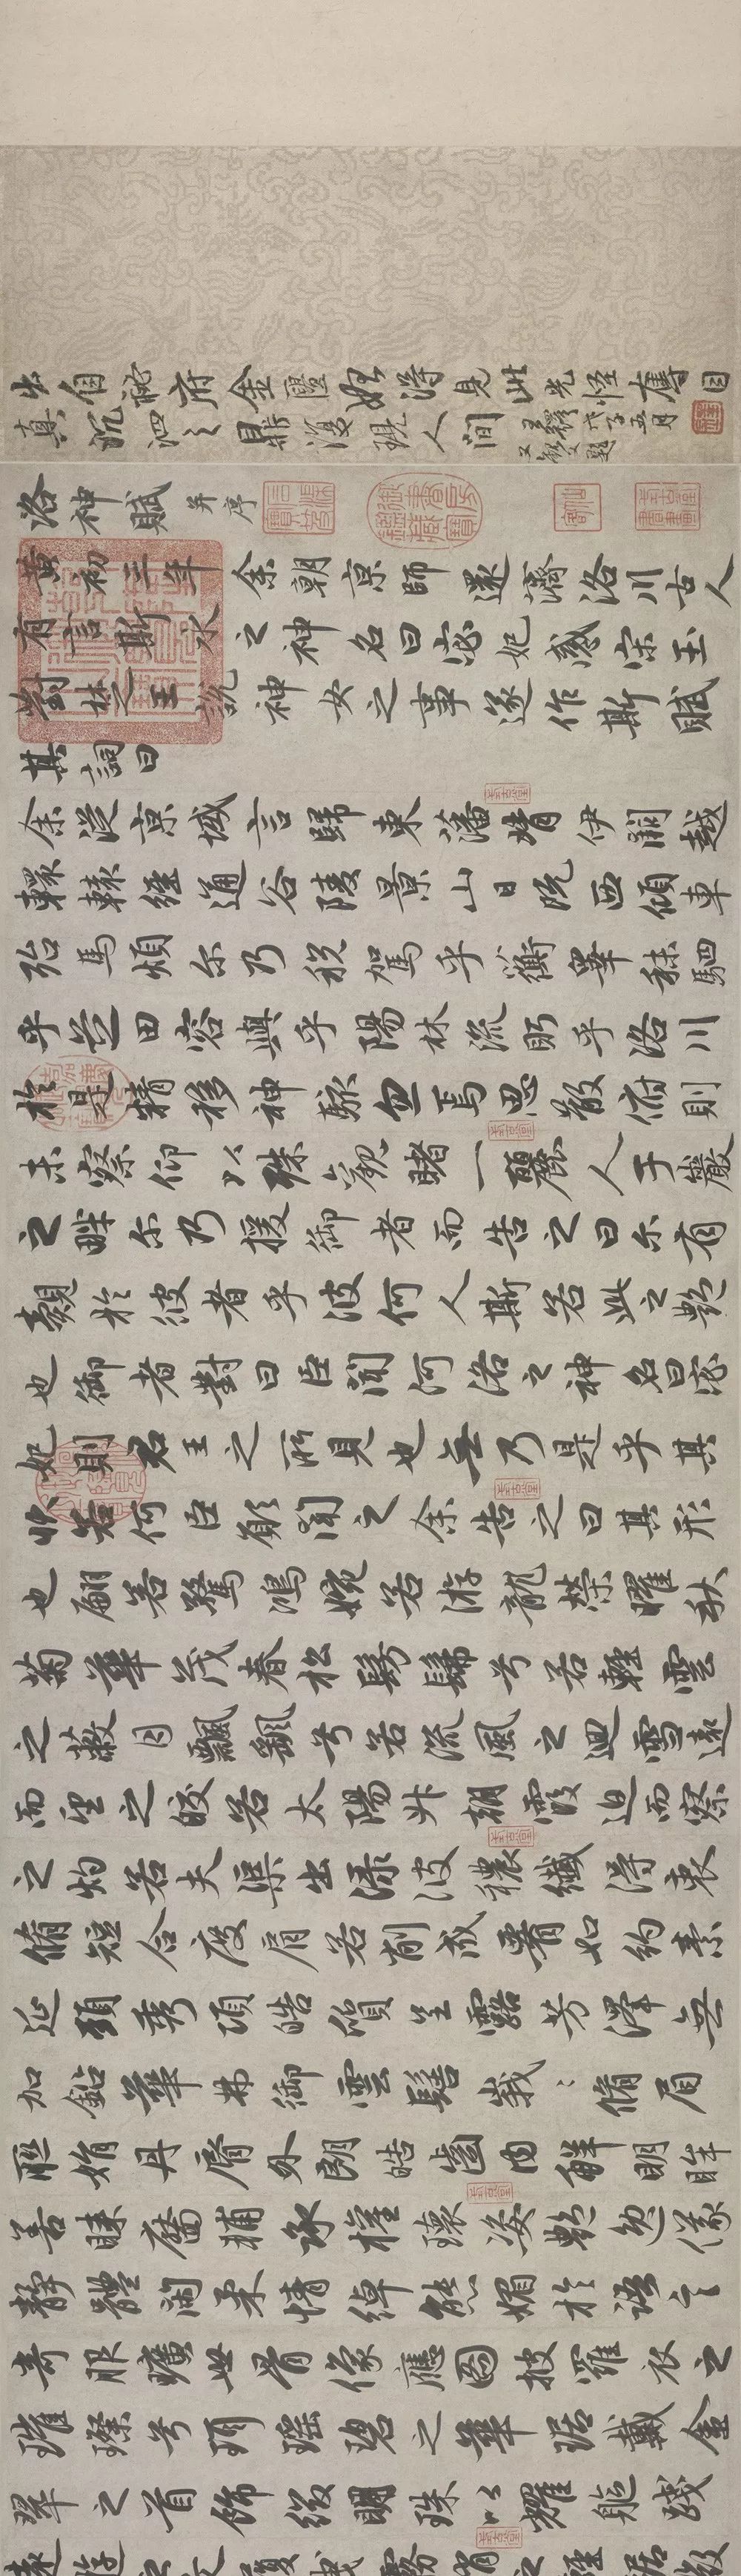 出自祕府金匱始得見此光怪
真沉泗之鼎復現人間
戊子五月
洛神賦 并序
黃初三年余朝京師還濟洛川古人
有言斯水之神名曰宓妃感宋玉
對楚王說神女之事遂作斯賦
其詞曰
余從京域言歸東藩背伊闕越
轘轅經通谷陵景山日既西傾車
殆馬煩尔乃稅駕乎蘅皋秣駟
乎芝田容與乎陽林流眄乎洛川
於是精移神駭忽焉思散俯則
未察仰以殊觀睹一麗人于巖
之畔尔乃援御者而告之曰尔有
覿於彼者乎彼何人斯若此之艷
也御者對曰臣聞河洛之神名曰宓
妃則君王之所見也無乃是乎其
狀若何臣願聞之余告之曰其形
也翩若驚鴻婉若游龍榮曜秋
菊華茂春松髣髴兮若輕雲
之蔽月飄颻兮若流風之迴雪遠
而望之皎若太陽升朝霞迫而察
之灼若夫渠出淥波穠纖得衷
脩短合度肩若削成腰如約素
延頸秀項皓質呈露芳澤無
加鉛華弗御雲髻峩〻脩眉
聯娟丹脣外朗皓齒內鮮明眸
善睞靨輔承權瓌姿艷逸儀
靜體閑柔情綽態媚於語言
奇服曠世骨像應圖披羅衣之
璀璨兮珥瑤碧之華琚戴金
翠之首飾綴明珠以耀軀踐